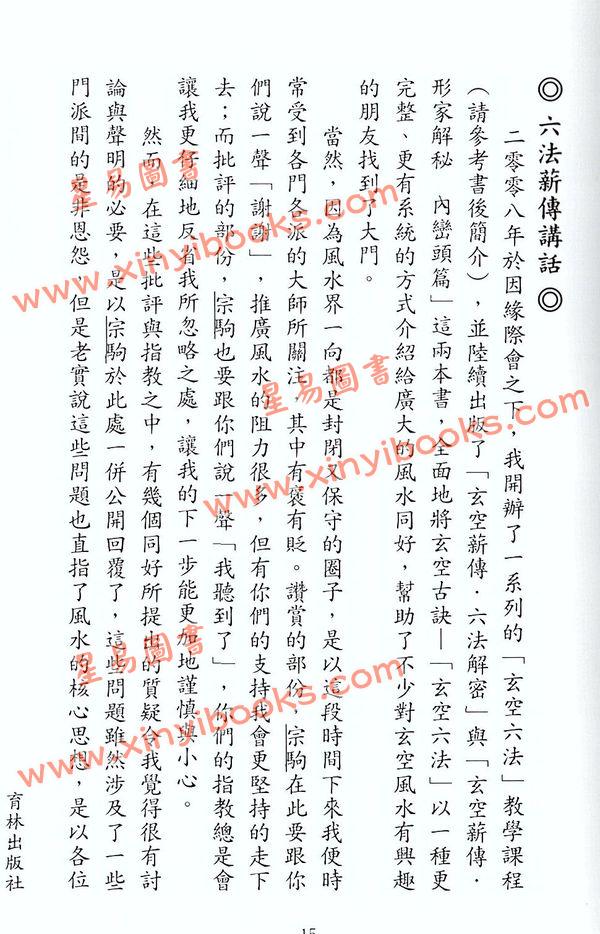 ◎ 六法薪傳講話 ◎
二零零八年於因緣際會之下，我開辦了一系列的「玄空六法」教學課程
（請參考書後簡介），並陸續出版了「玄空薪傳．六法解密」與「玄空薪傳．
形家解秘　內巒頭篇」這兩本書，全面地將玄空古訣—「玄空六法」以一種更
完整、更有系統的方式介紹給廣大的風水同好，幫助了不少對玄空風水有興趣
的朋友找到了大門。
當然，因為風水界一向都是封閉又保守的圈子，是以這段時間下來我便時
常受到各門各派的大師所關注，其中有褒有貶。讚賞的部份，宗駒在此要跟你
們說一聲「謝謝」，推廣風水的阻力很多，但有你們的支持我會更堅持的走下
去；而批評的部份，宗駒也要跟你們說一聲「我聽到了」，你們的指教總是會
讓我更仔細地反省我所忽略之處，讓我的下一步能更加地謹慎與小心。
然而，在這些批評與指教之中，有幾個同好所提出的質疑令我覺得很有討
論與聲明的必要，是以宗駒於此處一併公開回覆了，這些問題雖然涉及了一些
門派間的是非恩怨，但是老實說這些問題也直指了風水的核心思想，是以各位
育林出版社
15
星易圖書
www.xinyibooks.com
星易圖書
www.xinyibooks.com
星易圖書
www.xinyibooks.com